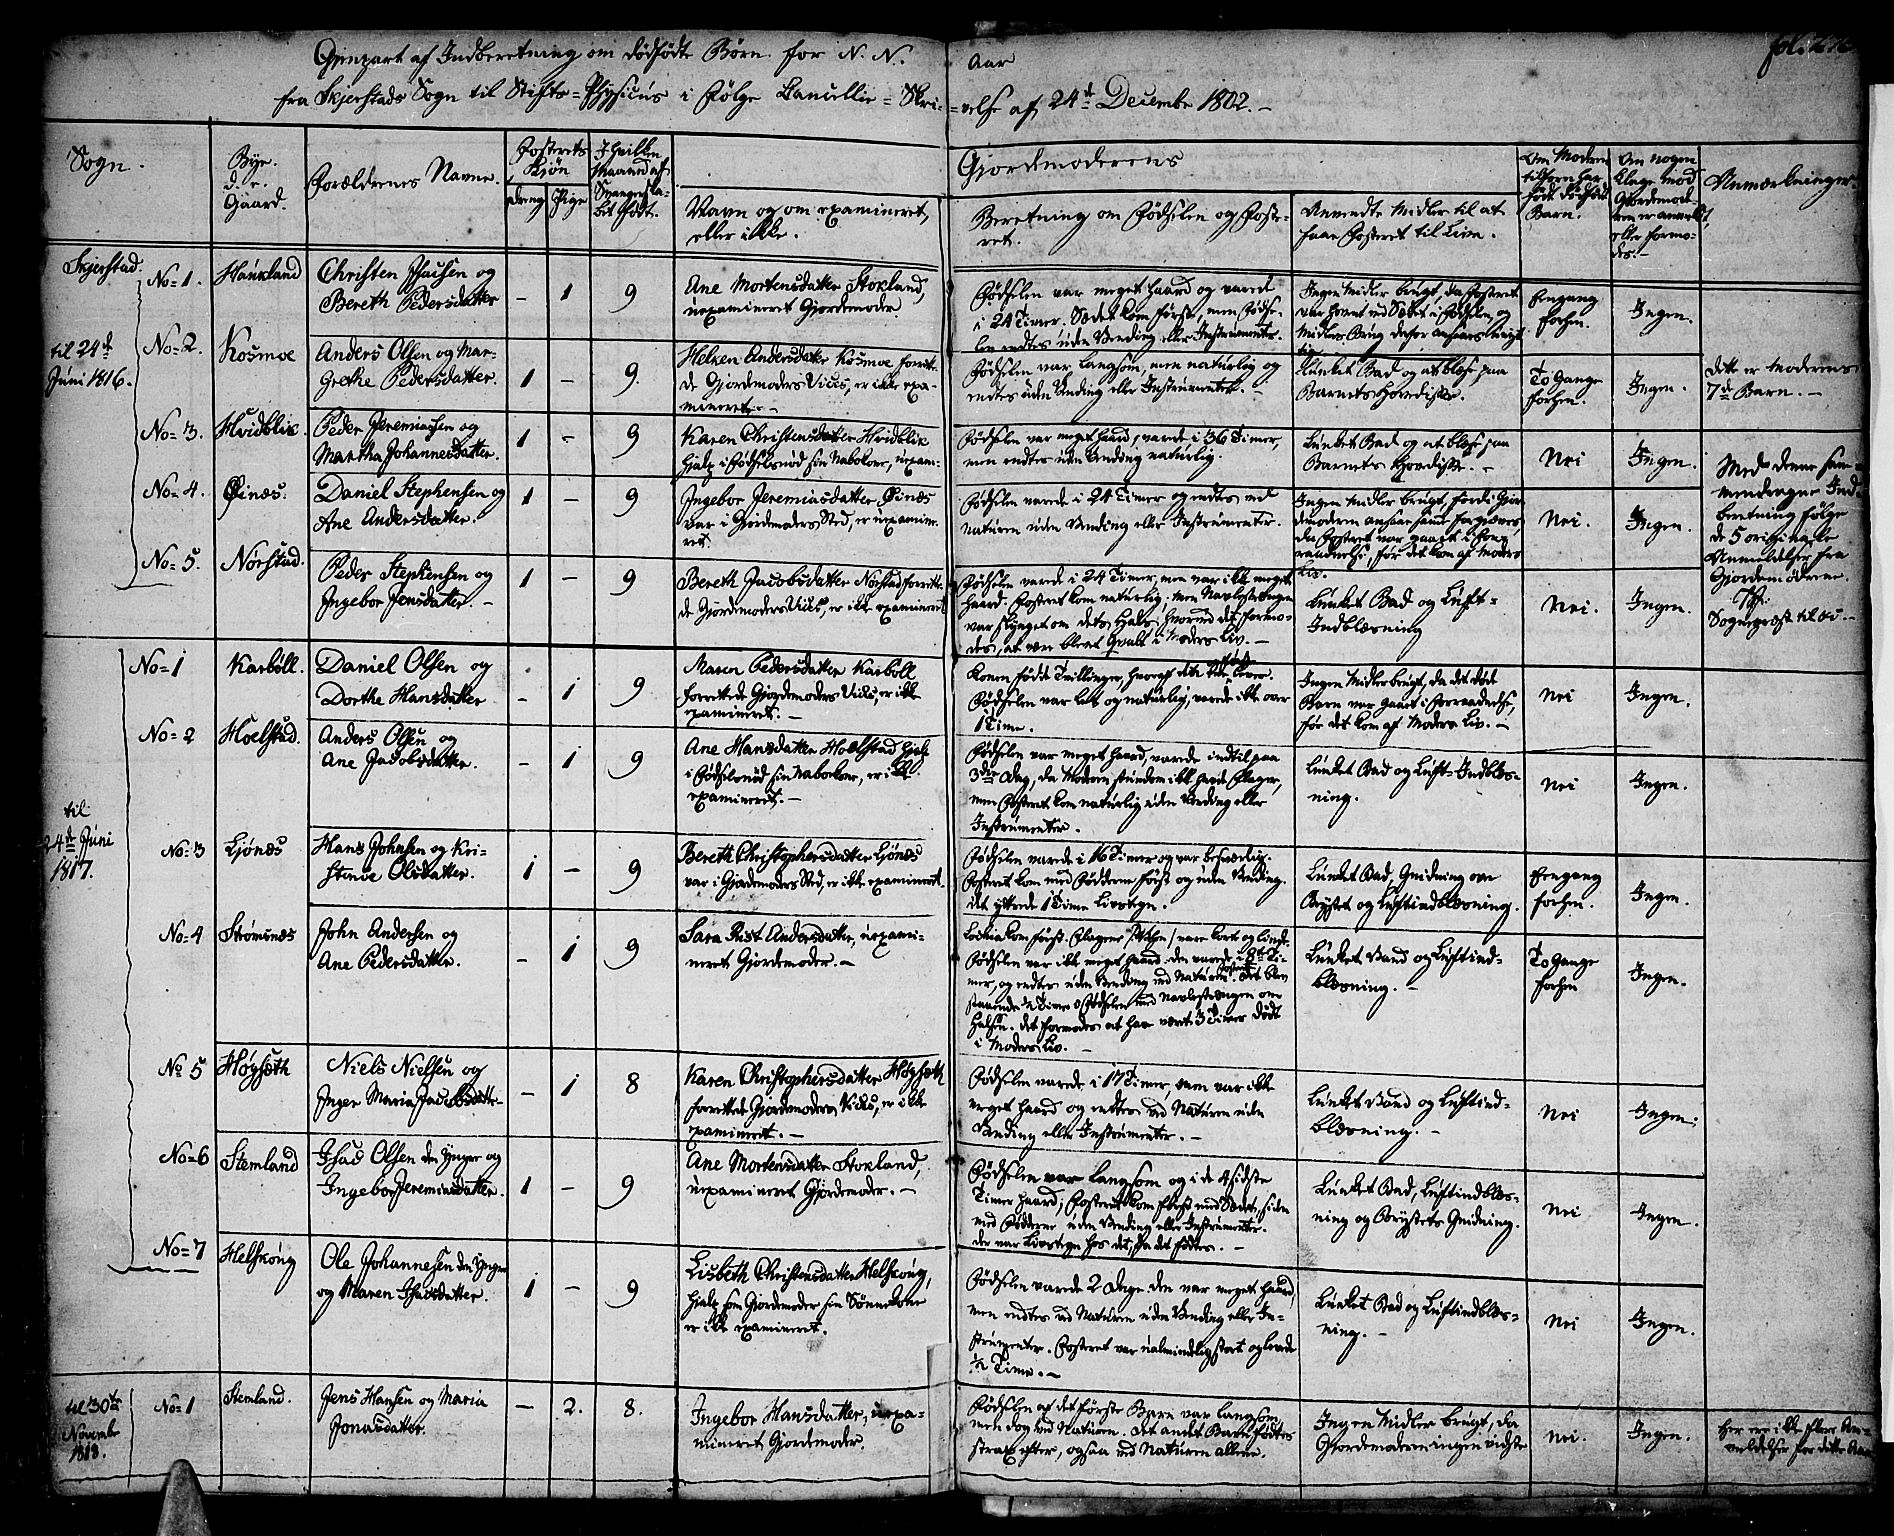 Gjenpart af Indberetning om dødfødte Børn for N. N. Aar
fra Skjerstads Sogn til Stifts-Physicus i Følge Cancellie-Skri-velse af 24de Decembr 1802.-
Sogn.
Bye.
d. e.
Gaard.
Forældrenes Navne.
Fosterets Kjøn
Dreng
Pige
I hvilken
Maaned af
Svangerska-
bet født.
Navn og om examineret,
eller ikke.
Gjordemoderens
Beretning om Fødselen og Foste-
ret.
Anvendte Midler til at
faae Fosteret til Live.
Om Moderen
tilforn har
født dødfødt
Barn.
Om nogen
Klage mod
Gjordemod-
ren er anvendt
eller formo-
des.-
Anmærkninger.
Skjerstad.
til 24de
Juni 1816.
No=1.
Haukland
Christen Isaksen og
Bereth Pedersdatter
- 1 9
Ane Mortensdatter Stokland,
uexamineret Gjordemoder.
Fødselen var meget haard og varede
i 24 Timer. Sædet kom først, men Fødse-
len endtes uden Vending eller Instrumenter.
Ingen Midler brugt, da Fosteret
Eengang
forhen.
Ingen.
No=2.
Kosmoe
Anders Olsen og Mar-
grethe Pedersdatter.
1 - 9.
Helken Andersdatter Kosmoe forrette-
de Gjordemoders Vices, er ikke exa-
mineret.-
Fødselen var langsom, men naturlig og
endtes uden Vending eller Instrumenter.
Lunket Bad og at blæse paa
Barnets Hovedisse.
To Gange
forhen.
Ingen.
Dette er Moderens
7de Barn.-
No=3.
Hvidblik.
Peder Jeremiasen og
Martha Johannesdatter.
1 - 9
Karen Christensdatter Hvidblik
hjalp i Fødselsnød sin Nabokone, uexam-
ineret.
Fødselen var meget haard, varede i 36 Timer,
men endtes uden Vending naturlig.
Lunket Bad og at blæse paa
Barnets Hovedisse.-
Nei
Ingen.
No=4.
Øinæs.
Daniel Stephensen og
Ane Andersdatter.
1 - 9
Ingebor Jeremiasdatter Øinæs
var i Gjordemoders Sted, er uexamine-
ret.
Fødselen varede i 24 Timer og endtes ved
Naturen uden Vending eller Instrumenter.
Ingen Midler brugt, fordi Gjor-
demoderen ansaae saadant forgjæves,
da Fosteret var gaaet i For-
raadnelse, før det kom af Moders
Liv.
Nei.
Ingen.
Med denne sam-
mendragne Ind-
beretning følge
de 5 originale
Anmeldelser fra
Gjordemødrene.
Sognepræst til do.-
No=5.
Nørstad.
Peder Stephensen og
Ingebor Jensdatter.-
1 - 9
Bereth Jacobsdatter Nørstad forrette-
de Gjordemoders Vices, er ikke examineret
Fødselen varede i 24 Timer, men var ikke meget
haard. Fosteret kom naturlig. Men Navlestrængen
var slynget om dets Hals, hvorved det formo-
des, at være blevet qvalt i Moders Liv.-
Lunket Bad og Luft-
Indblæsning
Nei.
Ingen.
til
24de Juni
1817.
No=1
Karbøll.
Daniel Olsen og
Dorthe Hansdatter
- 1 9
Maren Pedersdatter Karbøll
forrettede Gjordemoders Vices, er ikke
examineret.-
Konen fødte Tvillinger, hvoraf det ene lever.
Fødselen var let og naturlig, varede ikke over
1 Time.
Ingen Midler brugt, da det døde
Barn var gaaet i Forraadnelse,
før det kom af Moders Liv.-
Nei
Ingen.
No=2
Hoelstad.
Anders Olsen og
Ane Jacobsdatter.
- 1 9
Ane Hansdatter Hoelstad hjalp
i Fødselsnød sin Nabokone, er ikke
examineret.-
Fødselen var meget haard, varede indtil paa
3die Dag, da Moderen stundom ikke havde Plager,
men Fosteret kom naturlig uden Vending eller
Instrumenter.
Lunket Bad og Luft-Indblæs-
ning.
Nei
Ingen.
No=3
Ljønæs
Hans Johnsen og Kri-
stense Olsdatter.
1 - 9
Bereth Christophersdatter Ljønæs
var i Gjordemoders Sted, er ikke examineret.
Fødselen varede i 16 Timer og var besværlig.
Fosteret kom med Fødderne først og uden Vending.
Det yttrede 1 Time Livstegn.
Lunket Bad, Gnidning over
Brystet og Luftindblæsning.
Eengang
forhen.
Ingen.
No=4
Strømsnæs
John Andersen og
Ane Pedersdatter.
- 1 9
Sara Rist Andersdatter, uexami-
neret Gjordemoder.-
Halsen. Det formodes at have været 3 Timer dødt
i Moders Liv.-
Lunket Vand og Luftind-
blæsning.-
To Gange
forhen
Ingen.
No 5
Høgsæth
Niels Nielsen og
Inger Maria Jacobsdatter
- 1 8
Karen Christophersdatter Høgsæth
forrettede Gjordemoders Vices, er ikke
examineret.-
Fødselen varede i 17 Timer, men var ikke
meget haard og endtes ved Naturen uden
Vending eller Instrumenter.-
Lunket Vand og Luftind-
blæsning.-
Nei
Ingen.
No=6
Stemland
Isac Olsen den Yngre og
Ingebor Jeremiasdatter.
1 - 9
Ane Mortensdatter Stokland,
uexamineret Gjordemoder.-
Fødselen var langsom og i de 4 sidste
Timer haard, Fosteret kom først med Sædet, siden
med Fødderne uden Vending eller Instrumenter.
Der var Livstegn hos det, da det fødtes.-
Lunket Bad, Luftindblæs-
ning og Brystets Gnidning.
Nei
Ingen.
No=7
Helskong
Ole Johannesen den Yngre
og Maren Isacsdatter.
1 - 9
Lisbeth Christensdatter Helskong,
hjalp som Gjordemoder sin Sønnekone
er ikke examineret.
Fødselen varede 2 Dage. Den var meget haard,
men endtes ved Naturen uden Vending eller In-
strumenter. Fosteret var ualmindelig stort og levede
1/2 Time.-
Lunket Bad og Luftindblæs-
ning.-
Nei
Ingen.
til 30te
Novembr
1818.
No=1
Stemland.
Jens Hansen og Maria
Jonasdatter.
- 2. 8.
Ingebor Hansdatter, uexa-
mineret Gjordemoder.
Fødselen af det første Barn var langsom
men dog ved Naturen. Det andet Barn fødtes
strax efter, ogsaa ved Naturen allene.
Ingen Midler brugt, da
Gjordemoderen ingen vidste
Nei.
Ingen.
Her ere ikke flere An-
meldelser for dette Aar.